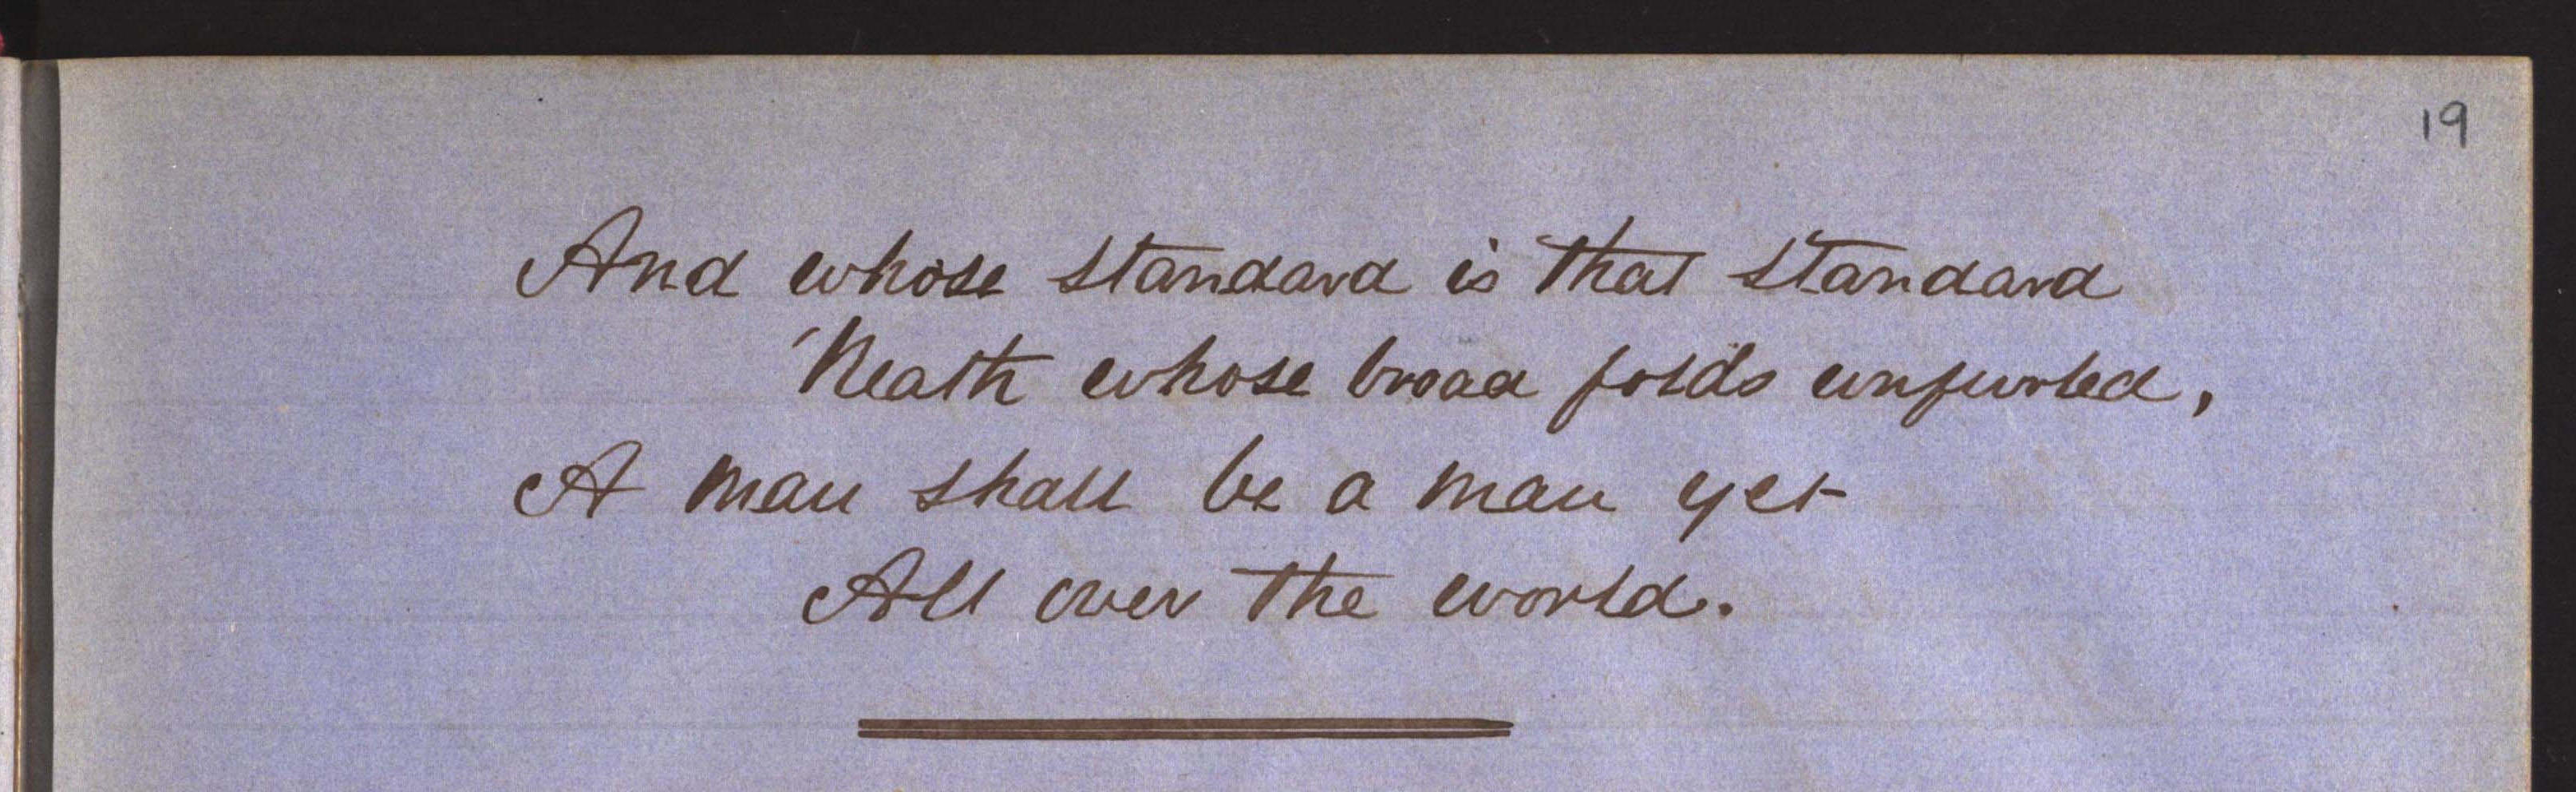 19
And whose standard is that standard
'Neath whose broad folds unfurled,
A man shall be a man yet
All over the world.